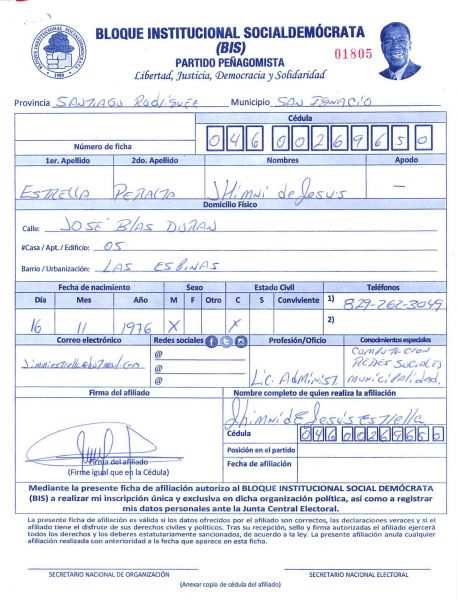 BLOQUE INSTITUCIONAL SOCIALDEMÓCRATA
(BIS)
01805
PARTIDO PEÑAGOMISTA
Libertad, Justicia, Democracia y Solidaridad
Provincia SANTIAGO RODRIGUEZ Municipio SAN IGNACIO
Cédula
Número de ficha 04600269650
1er. Apellido 2do. Apellido Nombres Apodo
ESTRELLA PERALTA JHimni de Jesus —
Domicilio Físico
Calle: JOSÉ BLAS DURAN
#Casa / Apt. / Edificio: 05
Barrio / Urbanización: LAS ESPINAS
Fecha de nacimiento Sexo Estado Civil Teléfonos
Día Mes Año M F Otro C S Conviviente 1) 829-262-3049
16 11 1976 X X 2)
Correo electrónico Redes sociales Profesión/Oficio Conocimientos especiales
@
@
@
Lic. Administ.
COMPUTACION
REDES SOCIALES
MUNICIPALIDAD.
Firma del afiliado Nombre completo de quien realiza la afiliación
Jhimni de Jesús Estrella
Cédula 04600269650
Posición en el partido
Fecha de afiliación
Firma del afiliado
(Firme igual que en la Cédula)
Mediante la presente ficha de afiliación autorizo al BLOQUE INSTITUCIONAL SOCIAL DEMÓCRATA
(BIS) a realizar mi inscripción única y exclusiva en dicha organización política, así como a registrar
mis datos personales ante la Junta Central Electoral.
La presente ficha de afiliación es válida si los datos ofrecidos por el afiliado son correctos, las declaraciones veraces y si el
afiliado tiene el disfrute de sus derechos civiles y políticos. Tras su recepción, sello y firma autorizadas el afiliado ejercerá
todos los derechos y los deberes estatutariamente sancionados, de acuerdo a la ley. La presente afiliación anula cualquier
afiliación realizada con anterioridad a la fecha que aparece en esta ficha.
SECRETARIO NACIONAL DE ORGANIZACIÓN SECRETARIO NACIONAL ELECTORAL
(Anexar copia de cédula del afiliado)